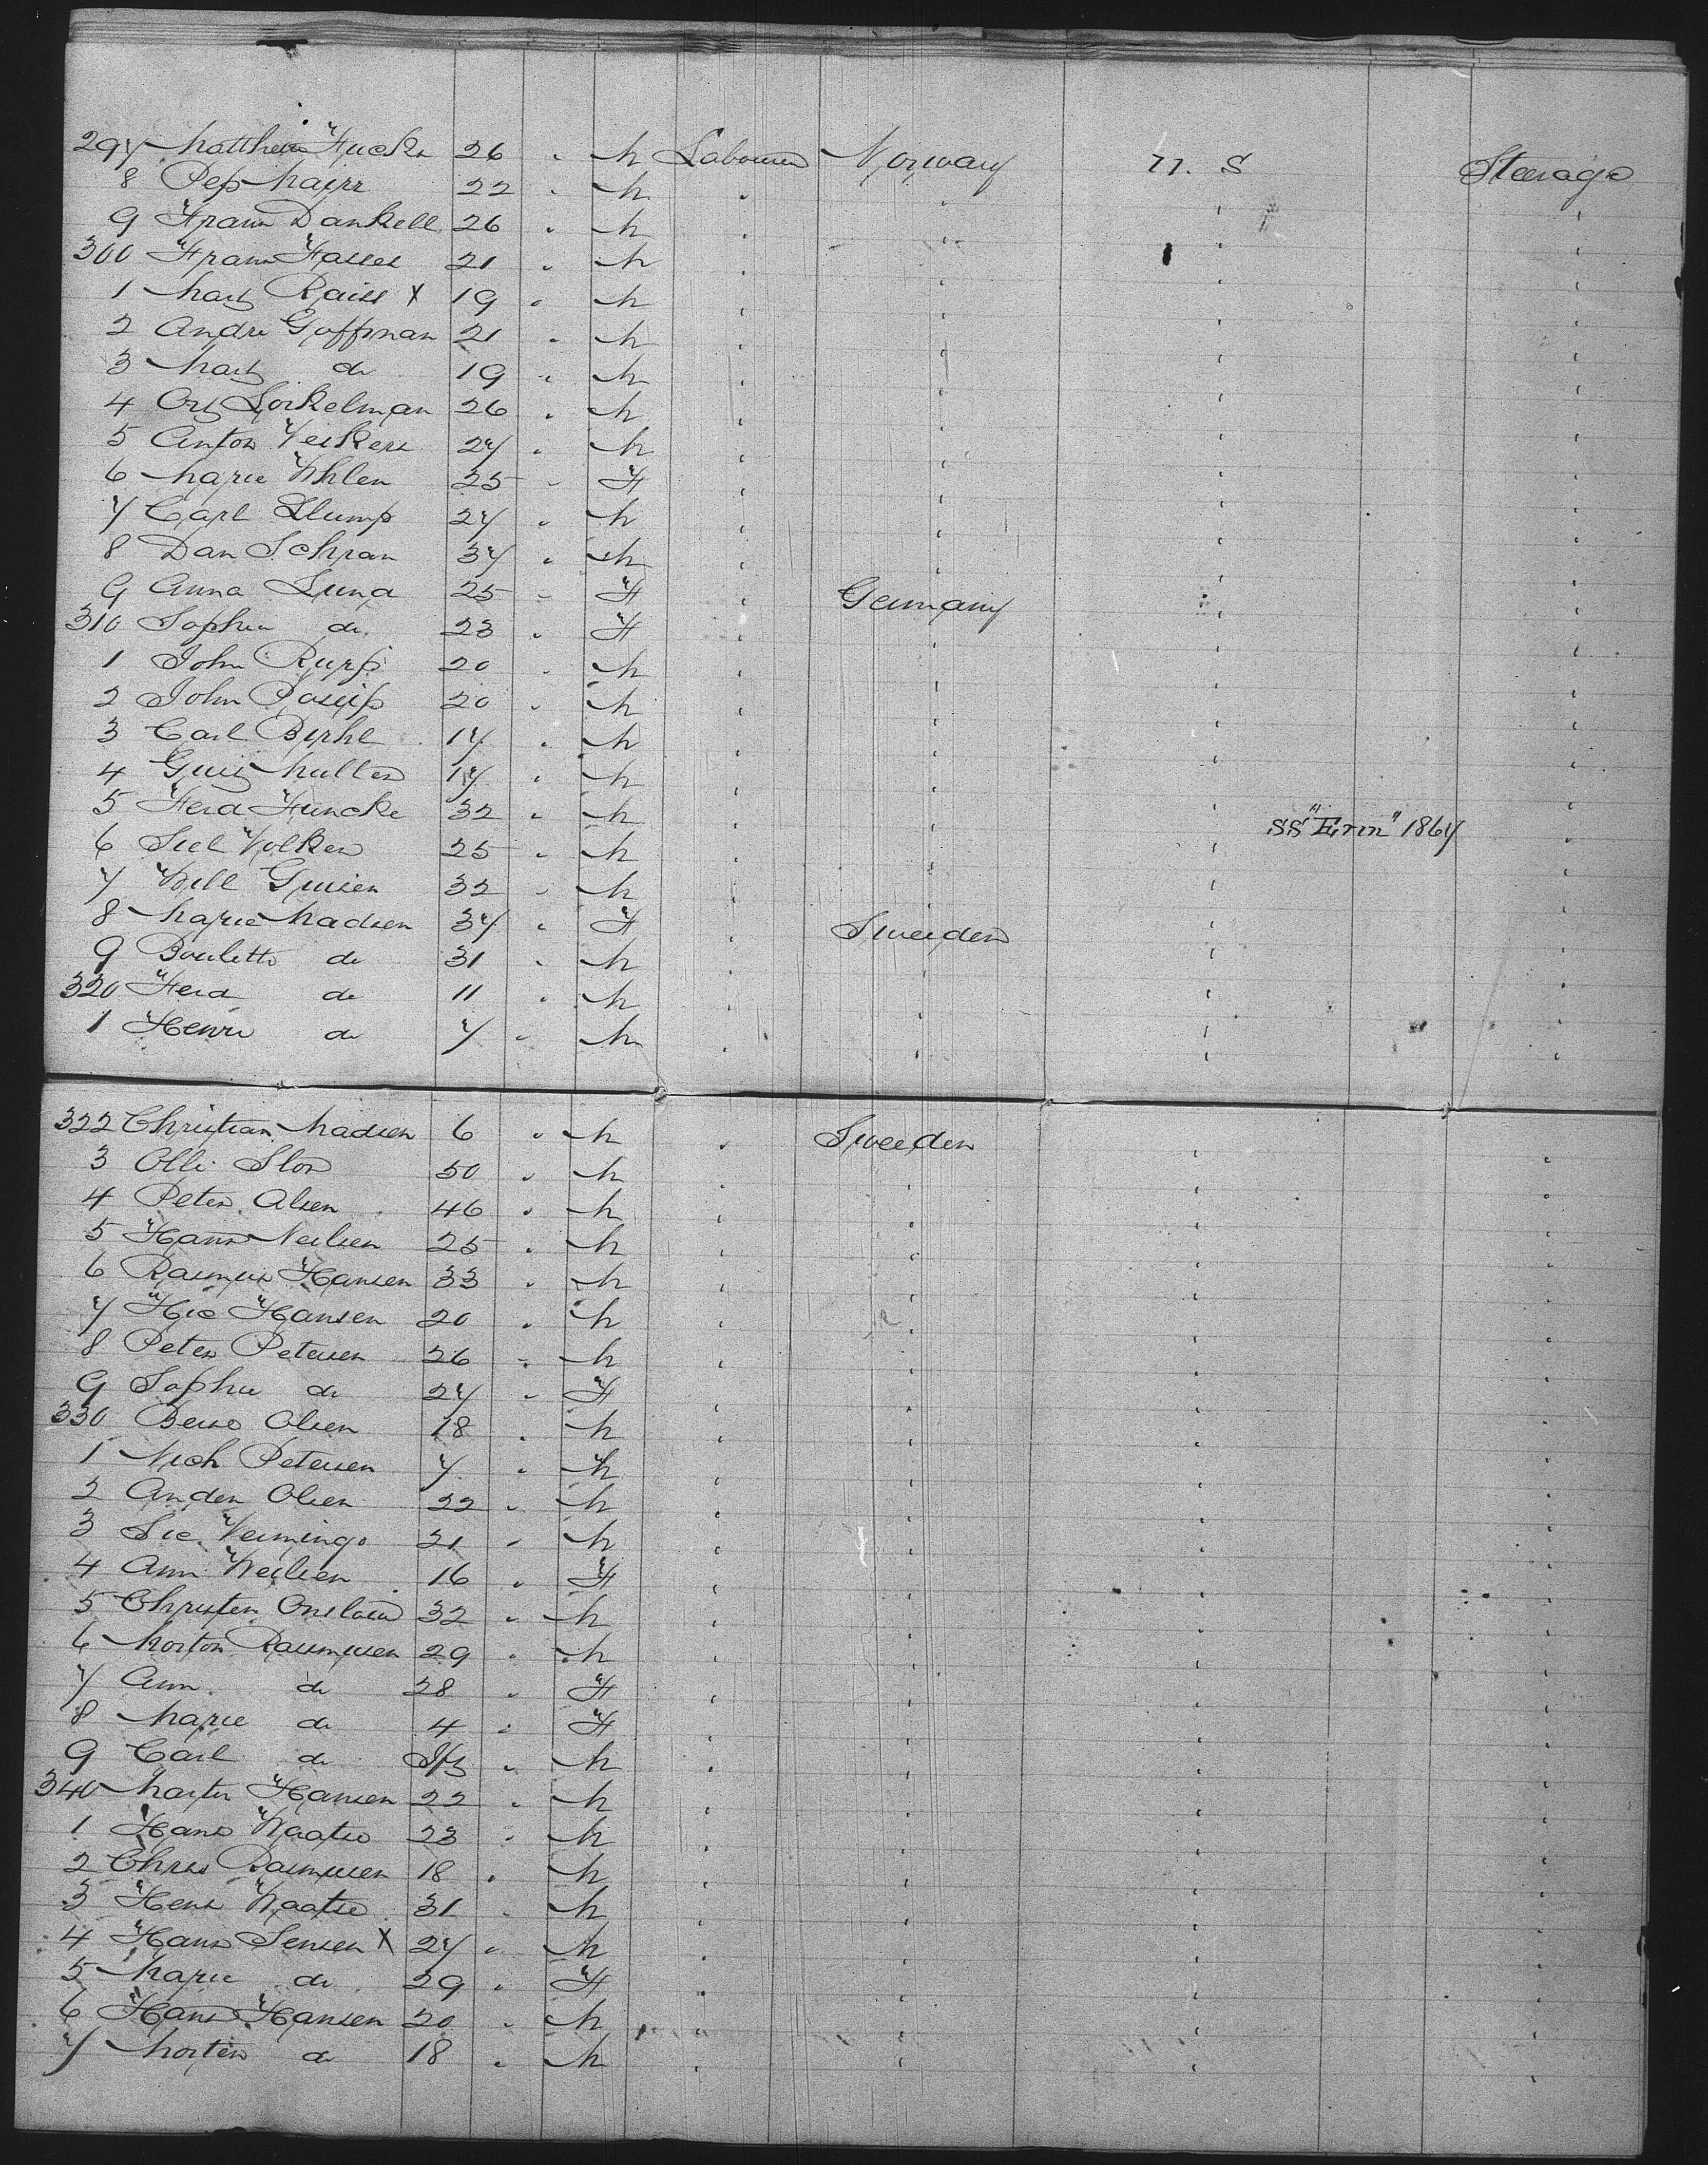 297 Matthew Fucks 26 " M Labourer Norway U. S Steerage
8 Pess Mairr 22 " M " " " "
9 Frann Dankell 26 " M " " " "
300 Frann Hasses 21 " M " " " "
1 Mary Raiss X 19 " M " " " "
2 Andre Goffman 21 " M " " " "
3 Mary do 19 " M " " " "
4 Ory Lorkelman 26 " M " " " "
5 Anton Veikers 27 " M " " " "
6 Marie Whlen 25 " F " " " "
7 Carl Slump 27 " M " " " "
8 Dan Schran 37 " M " " " "
9 Anna Luna 25 " F " Germany " "
310 Sophie do 23 " F " " " "
1 John Rupp 20 " M " " " "
2 John 20 " M " " " "
3 Carl Byrhl 17 " M " " " "
4 Muller 17 " M " " " "
5 Ferd Funcke 32 " M " " SS "Erin" 1864 "
6 Volken 25 " M " " " "
7 Will Guisen 32 " M " " " "
8 Marie Madsen 37 " F " Sweeden " "
9 Bouletto do 31 " M " " " "
320 Ferd do 11 " M " " " "
1 Henri do 7 " M " " " "
322 Christian Madsen 6 " M " Sweeden " "
3 Olli Slor 50 " M " " " "
4 Peter Alsen 46 " M " " " "
5 Hans Neilsen 25 " M " " " "
6 Rasmus Hansen 33 " M " " " "
7 Hansen 20 " M " " " "
8 Peter Petersen 26 " M " " " "
9 Sophie do 27 " F " " " "
330 Olsen 18 " M " " " "
1 Nich Petersen 7 " M " " " "
2 Anden Olsen 22 " M " " " "
3 21 " M " " " "
4 Ann Neilsen 16 " F " " " "
5 Christen 32 " M " " " "
6 Morton Rasmusen 29 " M " " " "
7 Ann do 28 " F " " " "
8 Marie do 4 " F " " " "
9 Carl do " M " " " "
340 Marten Hansen 22 " M " " " "
1 Hans Waatso 23 " M " " " "
2 Chris Rasmusen 18 " M " " " "
3 Hens Waatso 31 " M " " " "
4 Hans Jensen X 27 " M " " " "
5 Marie do 29 " F " " " "
6 Hans Hansen 20 " M " " " "
7 Morten do 18 " M " " " "